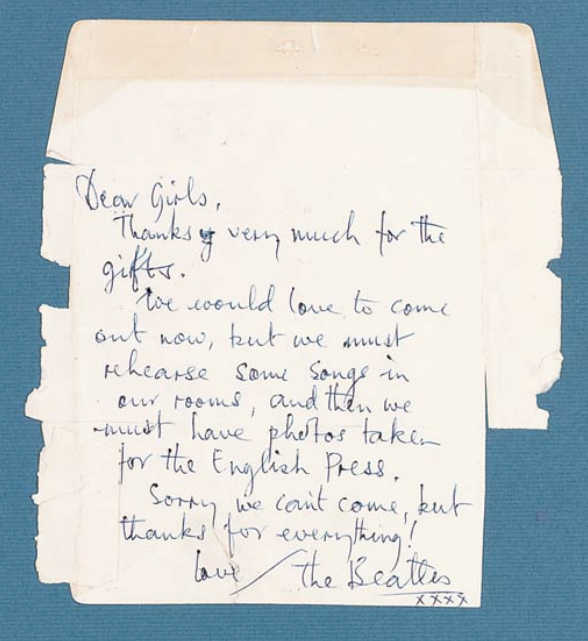 Dear Girls,
Thanks very much for the
gifts.
We would love to come
out now, but we must
rehearse some songs in
our rooms, and then we
must have photos taken
for the English Press.
Sorry we cant come, but
thanks for everything!
love / The Beatles
xxxx